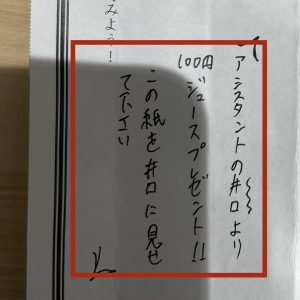 アシスタントの井口より
100円ジュースプレゼント!!
この紙を井口に見せ
て下さい
みよう!